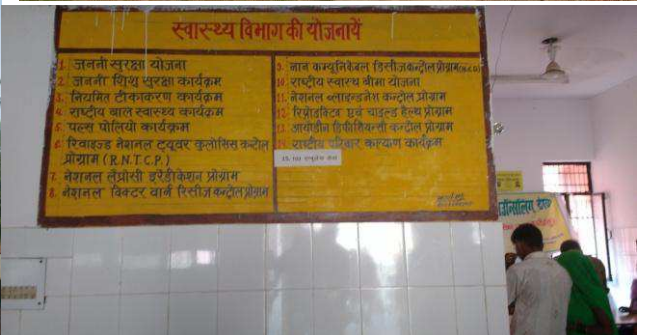 स्वास्थ्य विभाग की योजनायें
1. जननी सुरक्षा योजना
2. जननी शिशु सुरक्षा कार्यक्रम
3. नियमित टीकाकरण कार्यक्रम
4. राष्ट्रीय बाल स्वास्थ्य कार्यक्रम
5. पल्स पोलियो कार्यक्रम
6. रिवाइज्ड नेशनल ट्यूवर कुलोसिस कन्ट्रोल
प्रोग्राम (R.N.T.C.P.)
7. नेशनल लैप्रोसी इरेडीकेशन प्रोग्राम
8. नेशनल विक्टर वार्न डिसीज कन्ट्रोल प्रोग्राम
9. नान कम्युनिकेबल डिसीज कन्ट्रोल प्रोग्राम (N.C.D)
10. राष्ट्रीय स्वास्थ बीमा योजना
11. नेशनल ब्लाइन्डनेस कन्ट्रोल प्रोग्राम
12. रिप्रोडक्टिव एवं चाइल्ड हैल्थ प्रोग्राम
13. आयोडीन डिफीशियन्सी कन्ट्रोल प्रोग्राम
14. राष्ट्रीय परिवार कल्याण कार्यक्रम